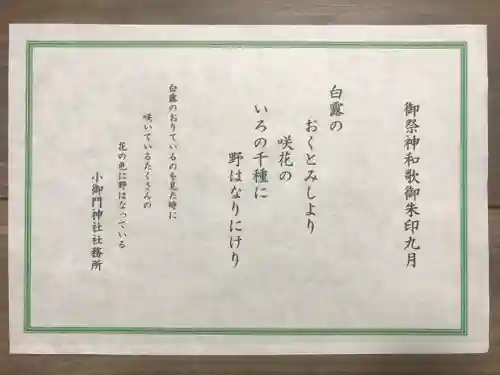 御祭神和歌御朱印九月
白露の
おくとみしより
咲花の
いろの千種に
野はなりにけり
白露のおりているのを見た時に
咲いているたくさんの
花の色に野はなっている
小御門神社社務所